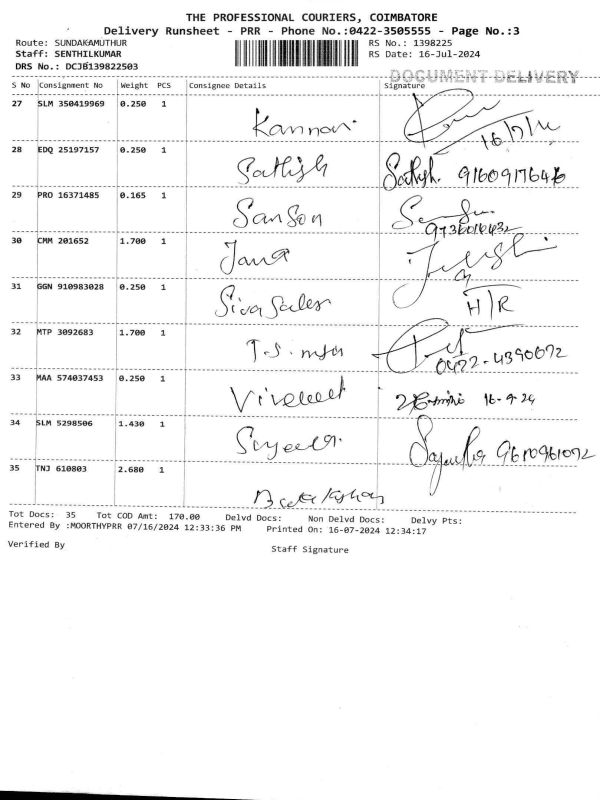 THE PROFESSIONAL COURIERS, COIMBATORE
Delivery Runsheet - PRR - Phone No.:0422-3505555 - Page No.:3
Route: SUNDAKAMUTHUR
RS No.: 1398225
Staff: SENTHILKUMAR
RS Date: 16-Jul-2024
DRS No.: DCJB139822503
DOCUMENT DELIVERY
S No Consignment No Weight PCS Consignee Details Signature
27 SLM 350419969 0.250 1
Kannan
16/7/
28 EDQ 25197157 0.250 1
Sathish Sathish.
29 PRO 16371485 0.165 1
Sanson
30 CMM 201652 1.700 1
Jana
31 GGN 910983028 0.250 1
H/R
32 MTP 3092683 1.700 1
0422-4390072
33 MAA 574037453 0.250 1
34 SLM 5298506 1.430 1
35 TNJ 610803 2.680 1
Tot Docs: 35 Tot COD Amt: 170.00 Delvd Docs: Non Delvd Docs: Delvy Pts:
Entered By :MOORTHYPRR 07/16/2024 12:33:36 PM Printed On: 16-07-2024 12:34:17
Verified By
Staff Signature